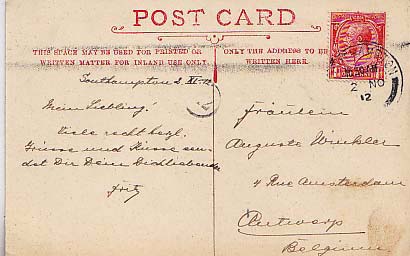 POST CARD
THIS SPACE MAY BE USED FOR PRINTED OR
WRITTEN MATTER FOR INLAND USE ONLY.
ONLY THE ADDRESS TO BE
WRITTEN HERE.
Southampton 2. XI. 12
Mein Liebling!
Viele recht herzl.
Grüsse und Küsse sen-
det Dir Dein Dichliebender
Fritz
2 NO
12
Fräulein
Auguste Winkler
4 Rue Amsterdam
Antwerp
Belgium